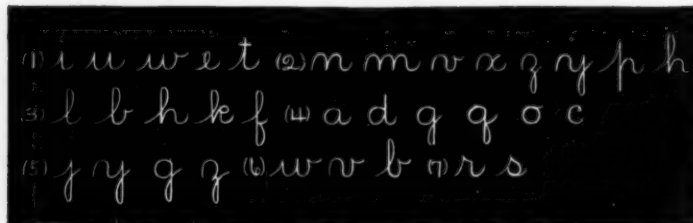 (1) i u w e t (2) n m v x z y p h
(3) l b h k f (4) a d g q o c
(5) j y g z (6) w v b (7) r s